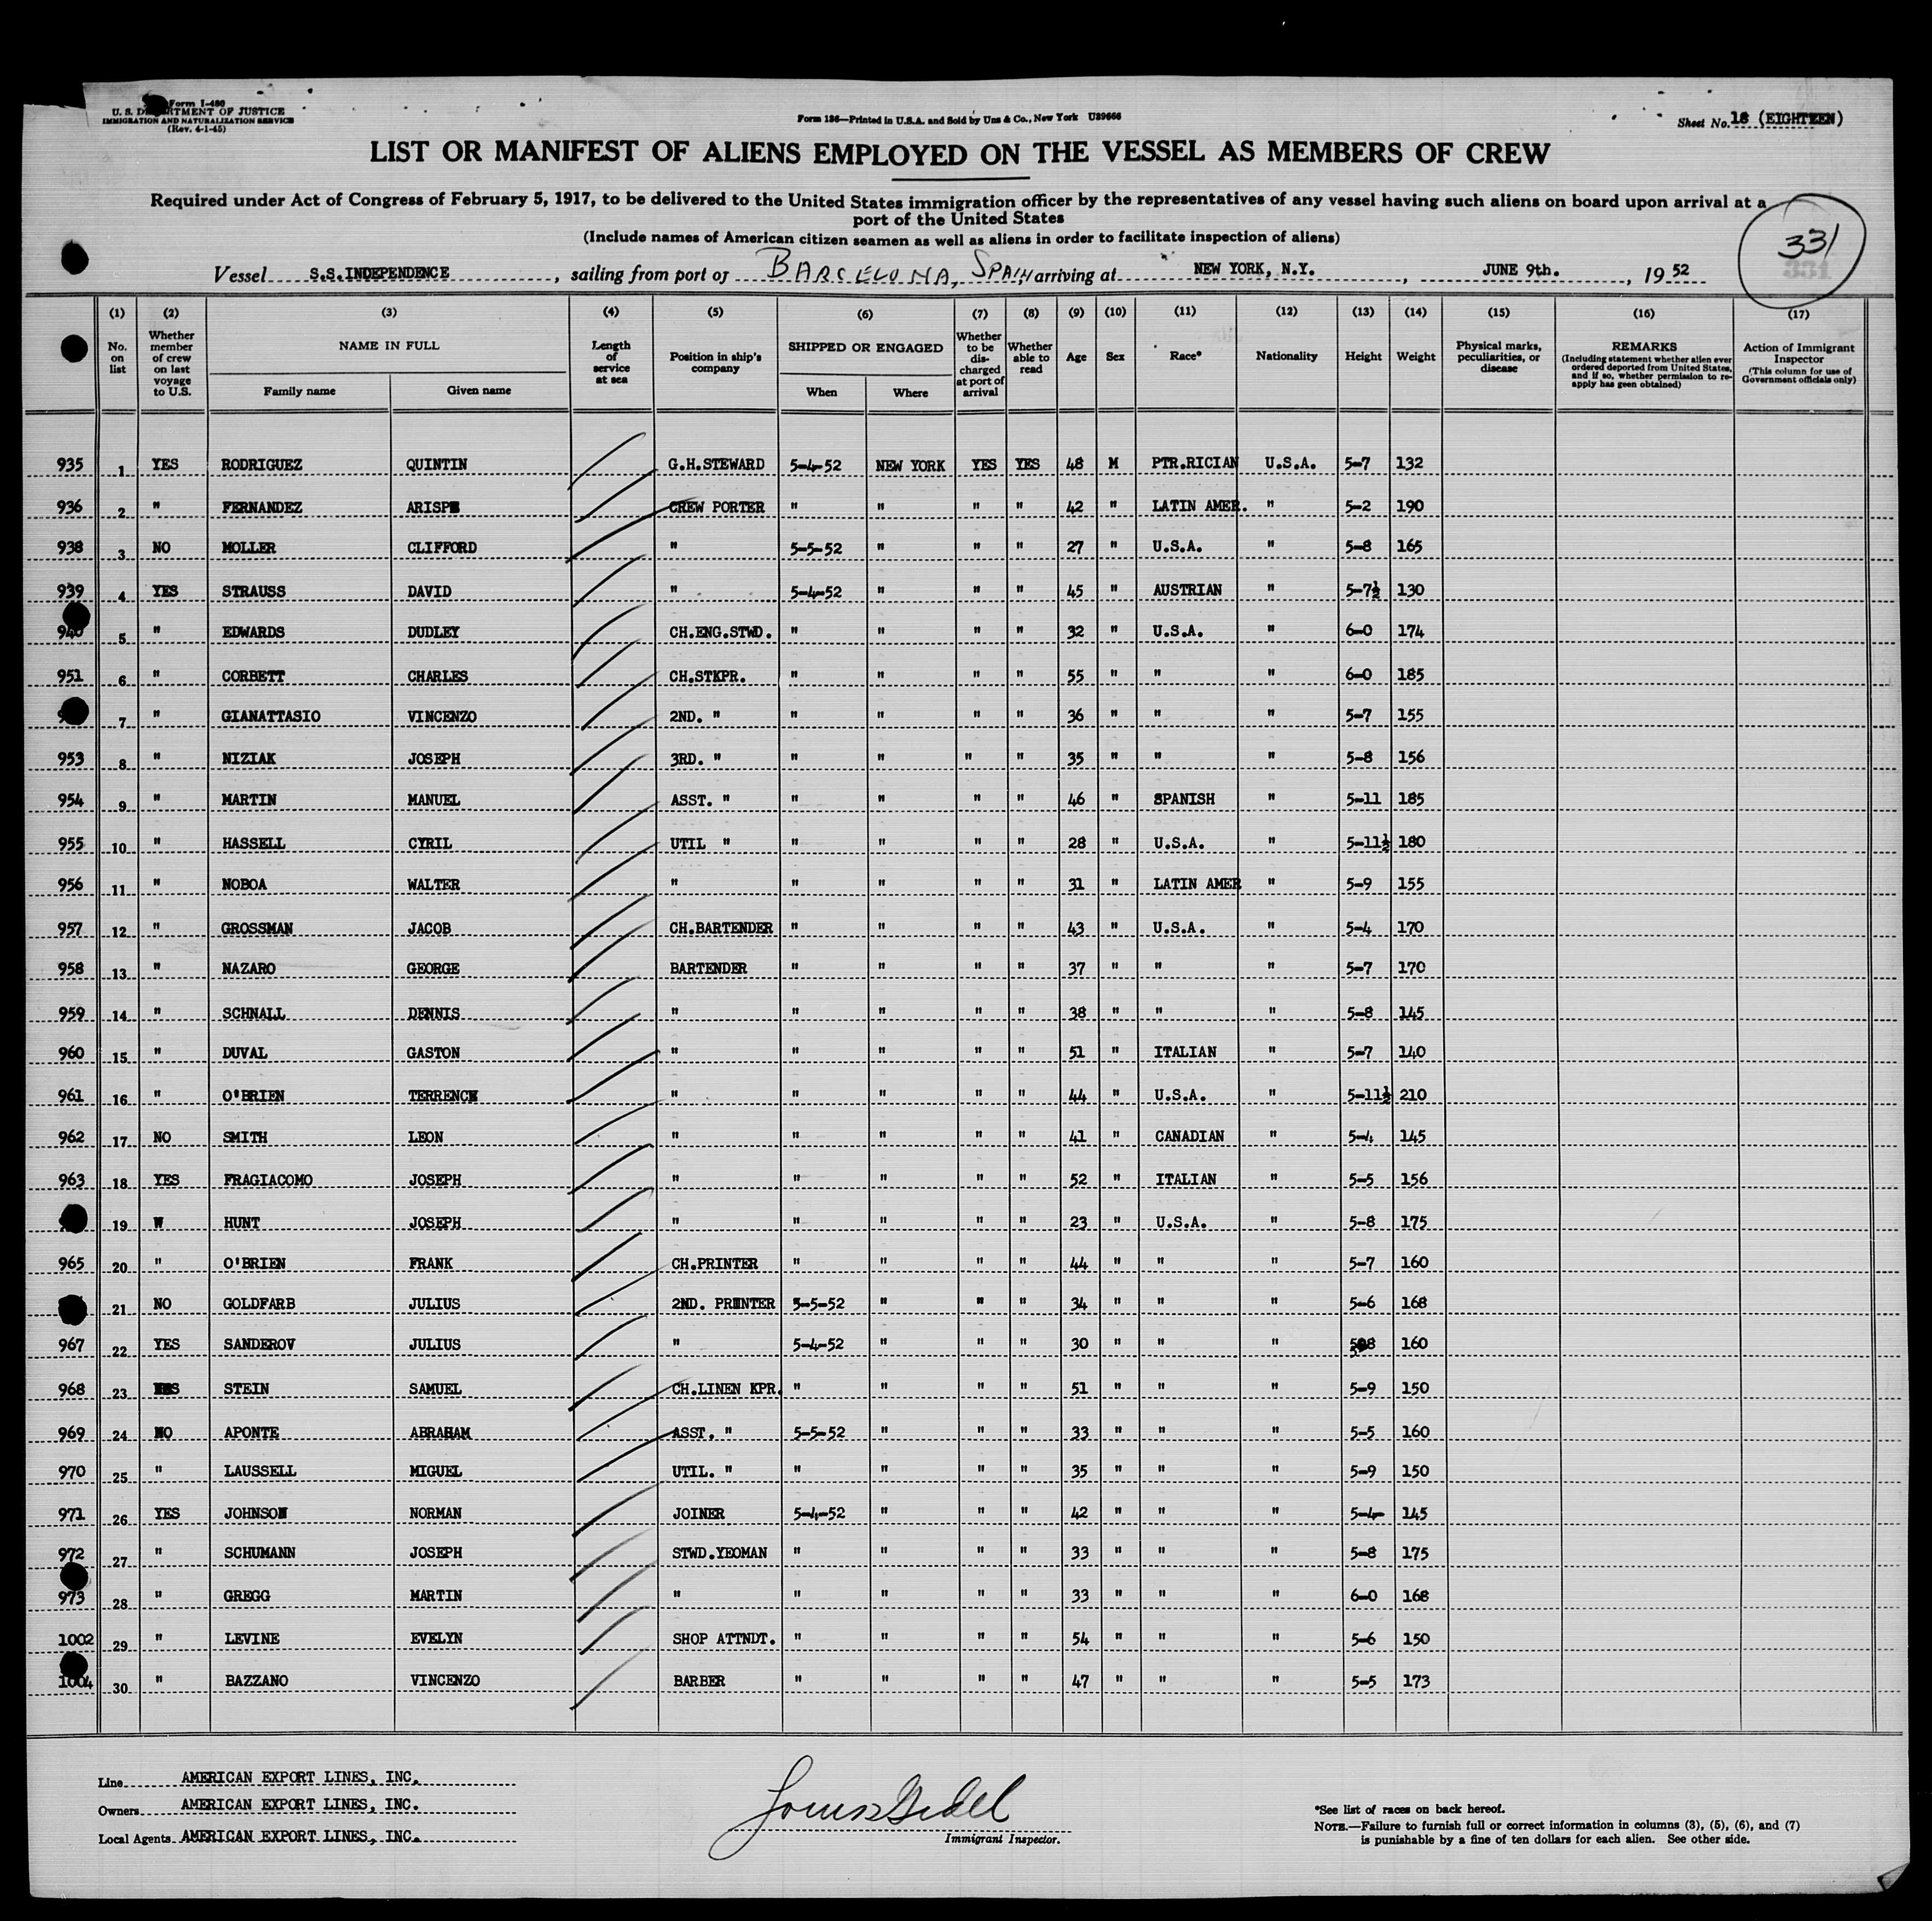 Form I-480
U. S. DEPARTMENT OF JUSTICE
IMMIGRATION AND NATURALIZATION SERVICE
(Rev. 4-1-45)
Form 186—Printed in U.S.A. and Sold by Unz & Co., New York U89666
Sheet No. 18 (EIGHTEEN)
LIST OR MANIFEST OF ALIENS EMPLOYED ON THE VESSEL AS MEMBERS OF CREW
Required under Act of Congress of February 5, 1917, to be delivered to the United States immigration officer by the representatives of any vessel having such aliens on board upon arrival at a
port of the United States
(Include names of American citizen seamen as well as aliens in order to facilitate inspection of aliens)
331
Vessel S.S.INDEPENDENCE, sailing from port of BARCELONA, SPAIN, arriving at NEW YORK, N.Y., JUNE 9th., 19 52
(1) (2) (3) (4) (5) (6) (7) (8) (9) (10) (11) (12) (13) (14) (15) (16) (17)
No. on list
Whether member of crew on last voyage to U.S.
NAME IN FULL
Family name Given name
Length of service at sea
Position in ship's company
SHIPPED OR ENGAGED
When Where
Whether to be discharged at port of arrival
Whether able to read
Age
Sex
Race*
Nationality
Height
Weight
Physical marks, peculiarities, or disease
REMARKS
(Including statement whether alien ever ordered deported from United States, and if so, whether permission to re-apply has geen obtained)
Action of Immigrant Inspector
(This column for use of Government officials only)
935 1 YES RODRIGUEZ QUINTIN G.H.STEWARD 5-4-52 NEW YORK YES YES 48 M PTR.RICIAN U.S.A. 5-7 132
936 2 " FERNANDEZ ARISPE CREW PORTER " " " " 42 " LATIN AMER. " 5-2 190
938 3 NO MOLLER CLIFFORD " 5-5-52 " " " 27 " U.S.A. " 5-8 165
939 4 YES STRAUSS DAVID " 5-4-52 " " " 45 " AUSTRIAN " 5-7½ 130
940 5 " EDWARDS DUDLEY CH.ENG.STWD. " " " " 32 " U.S.A. " 6-0 174
951 6 " CORBETT CHARLES CH.STKPR. " " " " 55 " " " 6-0 185
7 " GIANATTASIO VINCENZO 2ND. " " " " " 36 " " " 5-7 155
953 8 " NIZIAK JOSEPH 3RD. " " " " " 35 " " " 5-8 156
954 9 " MARTIN MANUEL ASST. " " " " " 46 " SPANISH " 5-11 185
955 10 " HASSELL CYRIL UTIL " " " " " 28 " U.S.A. " 5-11½ 180
956 11 " NOBOA WALTER " " " " " 31 " LATIN AMER " 5-9 155
957 12 " GROSSMAN JACOB CH.BARTENDER " " " " 43 " U.S.A. " 5-4 170
958 13 " NAZARO GEORGE BARTENDER " " " " 37 " " " 5-7 170
959 14 " SCHNALL DENNIS " " " " " 38 " " " 5-8 145
960 15 " DUVAL GASTON " " " " " 51 " ITALIAN " 5-7 140
961 16 " O'BRIEN TERRENCE " " " " " 44 " U.S.A. " 5-11½ 210
962 17 NO SMITH LEON " " " " " 41 " CANADIAN " 5-4 145
963 18 YES FRAGIACOMO JOSEPH " " " " " 52 " ITALIAN " 5-5 156
19 " HUNT JOSEPH " " " " " 23 " U.S.A. " 5-8 175
965 20 " O'BRIEN FRANK CH.PRINTER " " " " 44 " " " 5-7 160
21 NO GOLDFARB JULIUS 2ND. PRINTER 5-5-52 " " " 34 " " " 5-6 168
967 22 YES SANDEROV JULIUS " 5-4-52 " " " 30 " " " 5-8 160
968 23 YES STEIN SAMUEL CH.LINEN KPR. " " " " 51 " " " 5-9 150
969 24 NO APONTE ABRAHAM ASST. " 5-5-52 " " " 33 " " " 5-5 160
970 25 " LAUSSELL MIGUEL UTIL. " " " " " 35 " " " 5-9 150
971 26 YES JOHNSON NORMAN JOINER 5-4-52 " " " 42 " " " 5-4 145
972 27 " SCHUMANN JOSEPH STWD.YEOMAN " " " " 33 " " " 5-8 175
973 28 " GREGG MARTIN " " " " " 33 " " " 6-0 168
1002 29 " LEVINE EVELYN SHOP ATTNDT. " " " " 54 " " " 5-6 150
1004 30 " BAZZANO VINCENZO BARBER " " " " 47 " " " 5-5 173
Line AMERICAN EXPORT LINES, INC.
Owners AMERICAN EXPORT LINES, INC.
Local Agents AMERICAN EXPORT LINES, INC.
Immigrant Inspector.
*See list of races on back hereof.
NOTE.—Failure to furnish full or correct information in columns (3), (5), (6), and (7)
is punishable by a fine of ten dollars for each alien. See other side.